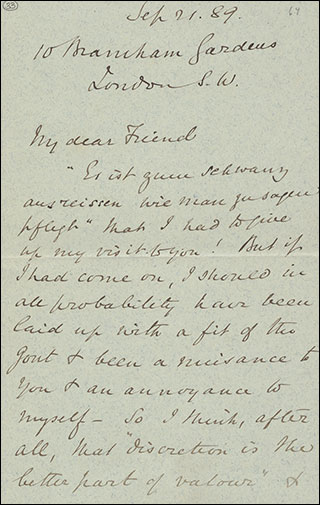 33
64
Sep 21. 89.
10 Bramham Gardens
London S.W.
My dear Friend
"Es ist zum schwanz
ausreissen wie man zu sagen
pflegt" that I had to give
up my visit to you! But if
I had come on, I should in
all probability have been
laid up with a fit of the
Gout & been a nuisance to
you & an annoyance to
myself - So I think, after
all, that "discretion is the
better part of valour" &